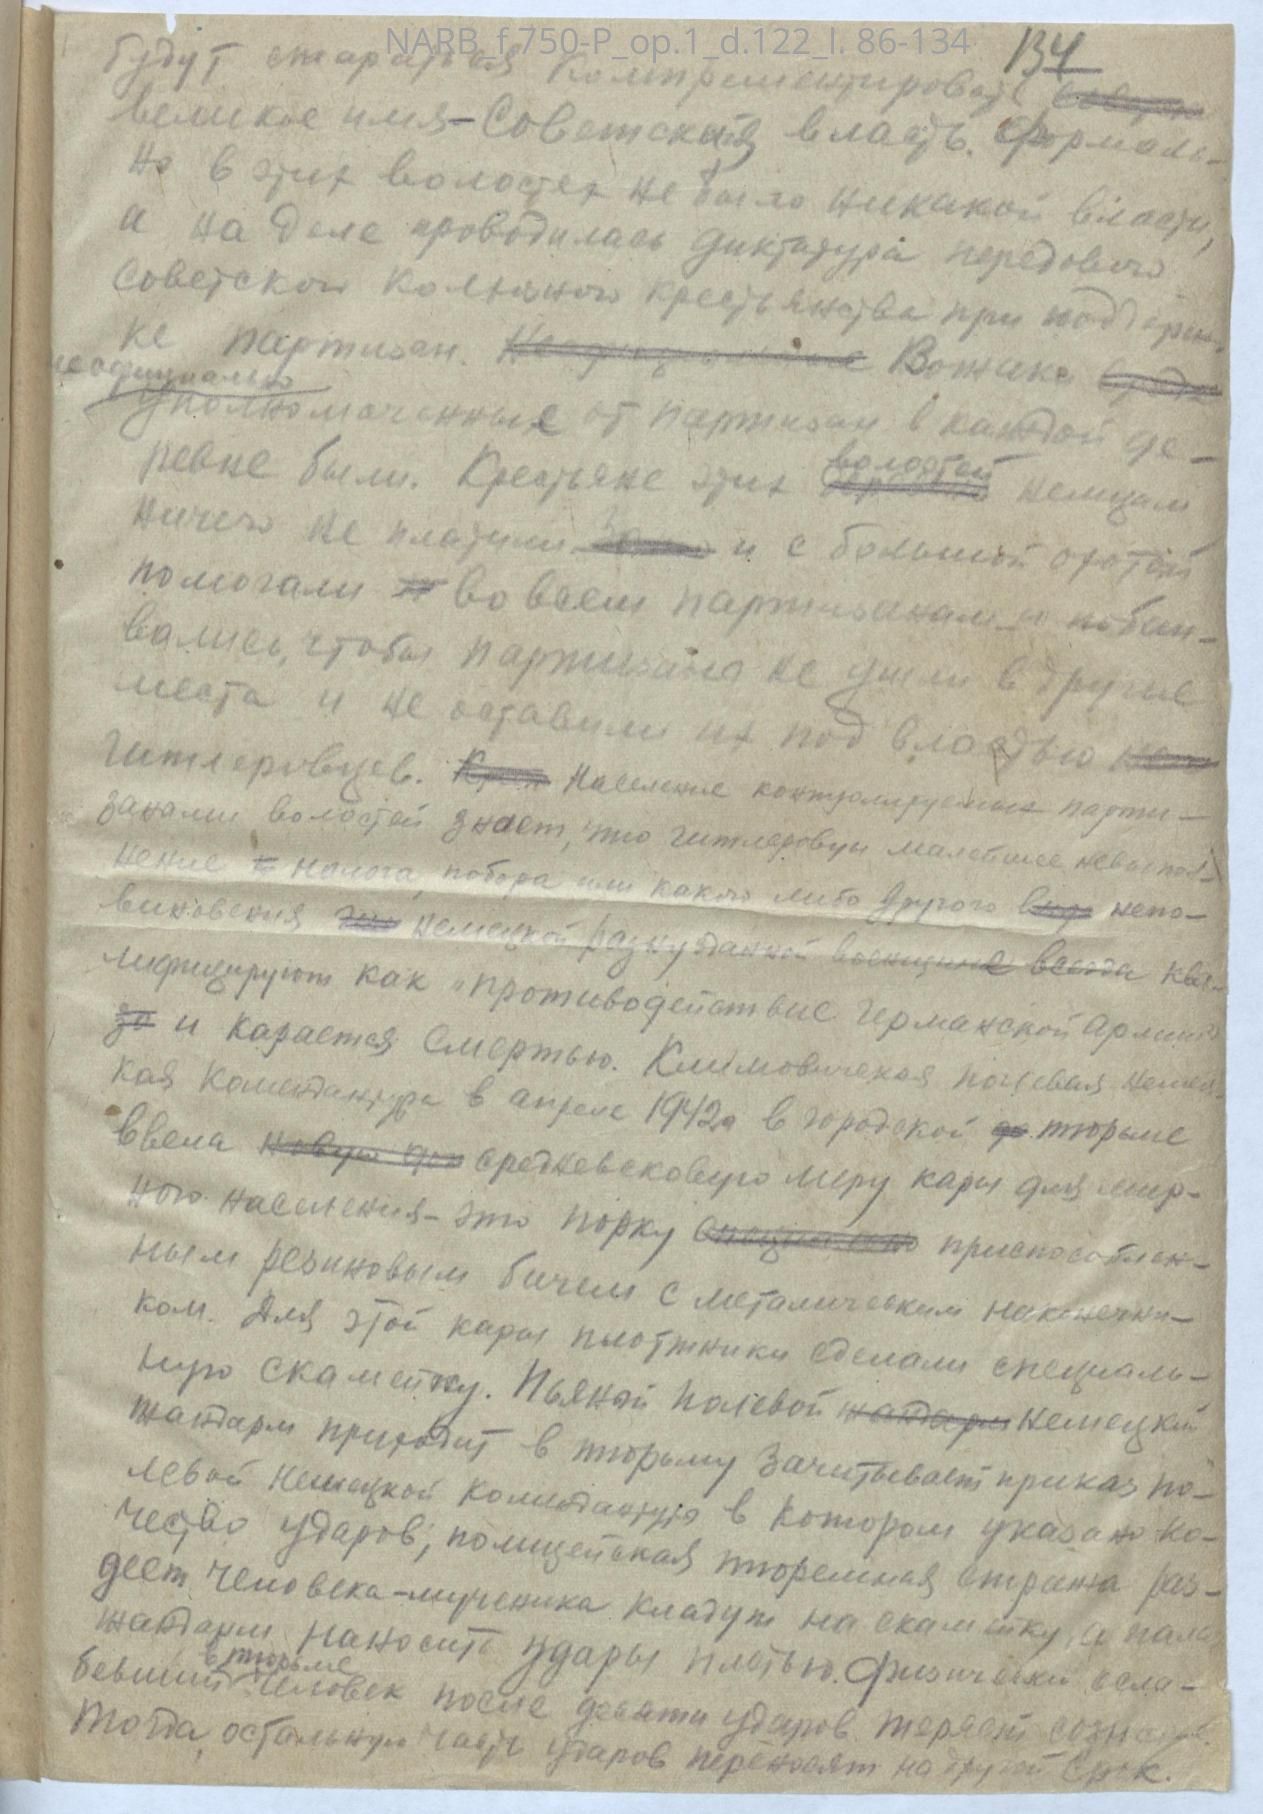 NARB_f.750-P_op.1_d.122_l. 86-134
134
будут стараться компрометировать
великое имя - Советская власть. Формаль-
но в этих волостях не было никакой власти,
а на деле проводилась диктатура передового
советского колхозного крестьянства при поддерж-
ке партизан. Вожаки
неофициально
уполномоченные от партизан в каждой де-
ревне были. Крестьяне этих волостей немцам
ничего не платили и с большой охотой
помогали во всем партизанам и побаи-
вались, чтобы партизаны не ушли в другие
места и не оставили их под властью
гитлеровцев. Население контролируемых парти-
занами волостей знает, что гитлеровцы малейшее невыпол-
нение налога, побора или какого либо другого непо-
виновения немецкой разнузданной военщине всегда ква-
лифицируют как "противодействие германской армии"
и карается смертью. Климовичская полевая немец-
кая комендантура в апреле 1942г в городской тюрьме
ввела средневековую меру кары для мир-
ного населения - это порку приспособлен-
ным резиновым бичем с металическим наконечни-
ком. Для этой кары плотники сделали специаль-
ную скамейку. Пьяный полевой немецкий
жандарм приходит в тюрьму зачитывает приказ по-
левой немецкой комендантуры в котором указано ко-
чество ударов, полицейская тюремная стража раз-
деет человека-мученика кладут на скамейку, а
жандарм наносить удары плетью. Физически осла-
бевший в тюрьме человек после девяти ударов теряет сознание.
Тогда, остальную часть ударов переносят на другой срок.